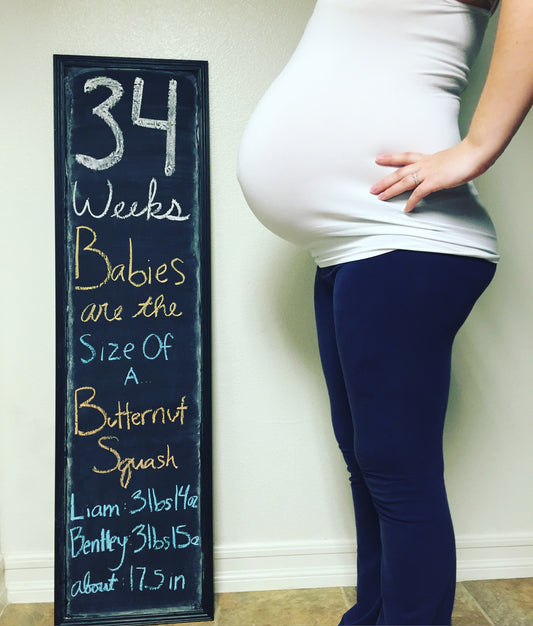 34
Weeks
Babies
are the
Size Of
A...
Butternut
Squash
Liam: 3lbs14oz
Bentley: 3lbs15oz
about: 17.5in